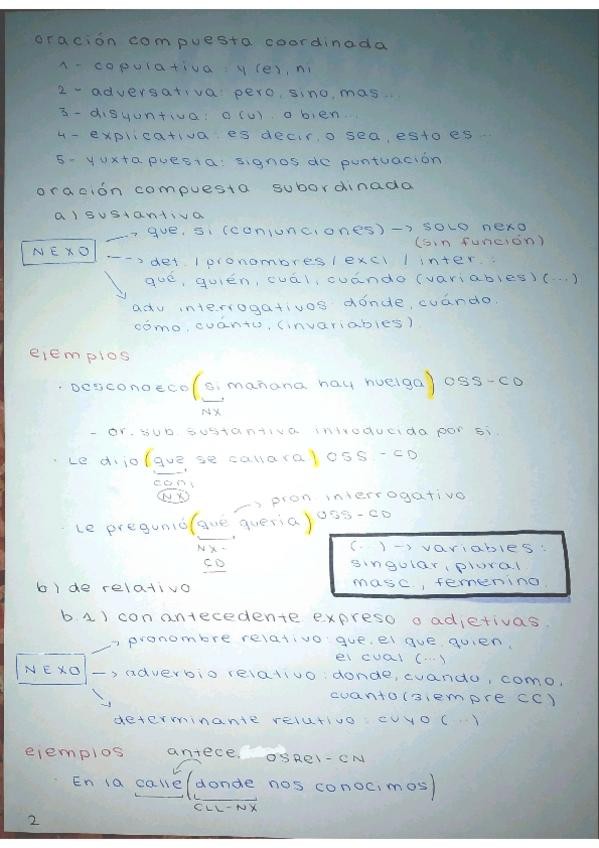 oración compuesta coordinada
1 - copulativa : y (e), ni
2 - adversativa: pero, sino, mas...
3 - disyuntiva: o (u). o bien...
4 - explicativa: es decir, o sea, esto es...
5 - yuxtapuesta: signos de puntuación
oración compuesta subordinada
a) sustantiva
NEXO
que, si (conjunciones) -> SOLO nexo
(sin función)
det. / pronombres / excl. / inter. :
qué, quién, cuál, cuándo (variables) (...)
adv interrogativos: dónde, cuándo,
cómo, cuánto, (invariables).
ejemplos
· Desconozco (si mañana hay huelga) OSS-CD
NX
- or. sub. sustantiva introducida por si.
· Le dijo (que se callara) OSS. - CD
conj
NX
-> pron. interrogativo
· Le preguntó (qué quería) OSS-CD
NX-
CD
(...) -> variables:
singular, plural
masc., femenino.
b) de relativo
b.1) con antecedente expreso o adjetivas.
NEXO
pronombre relativo: que, el que, quien,
el cual (...)
-> adverbio relativo: donde, cuando, como,
cuanto (siempre CC)
determinante relativo: cuyo (...)
ejemplos
antece. OSRel - CN
· En la calle (donde nos conocimos)
CCL-NX
2